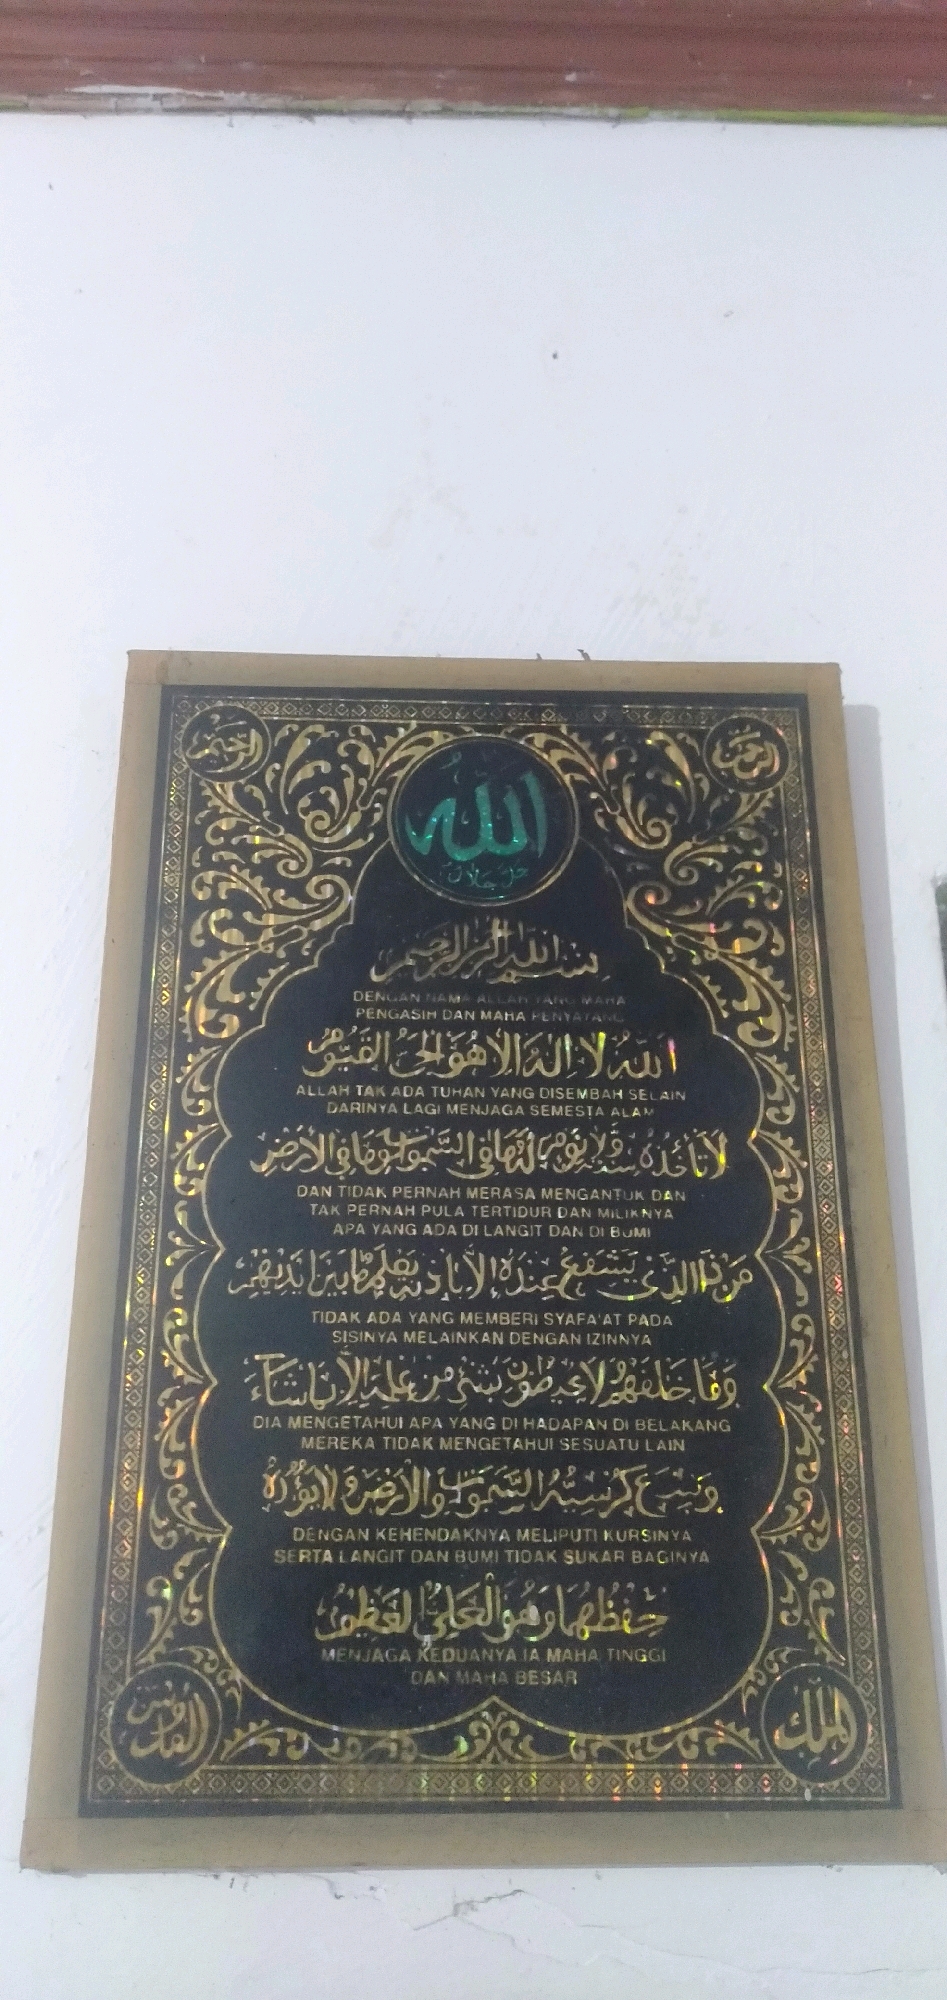 الرحيم
الرحمن
الله
جل جلاله
بسم الله الرحمن الرحيم
DENGAN NAMA ALLAH YANG MAHA
PENGASIH DAN MAHA PENYAYANG
الله لا اله الا هو الحي القيوم
ALLAH TAK ADA TUHAN YANG DISEMBAH SELAIN
DARINYA LAGI MENJAGA SEMESTA ALAM
لا تأخذه سنة ولا نوم له ما في السموات وما في الأرض
DAN TIDAK PERNAH MERASA MENGANTUK DAN
TAK PERNAH PULA TERTIDUR DAN MILIKNYA
APA YANG ADA DI LANGIT DAN DI BUMI
من ذا الذي يشفع عنده الا باذنه يعلم ما بين ايديهم
TIDAK ADA YANG MEMBERI SYAFA'AT PADA
SISINYA MELAINKAN DENGAN IZINNYA
وما خلفهم ولا يحيطون بشيء من علمه الا بما شاء
DIA MENGETAHUI APA YANG DI HADAPAN DI BELAKANG
MEREKA TIDAK MENGETAHUI SESUATU LAIN
وسع كرسيه السموات والأرض ولا يؤده
DENGAN KEHENDAKNYA MELIPUTI KURSINYA
SERTA LANGIT DAN BUMI TIDAK SUKAR BAGINYA
حفظهما وهو العلي العظيم
MENJAGA KEDUANYA IA MAHA TINGGI
DAN MAHA BESAR
القدوس
الملك